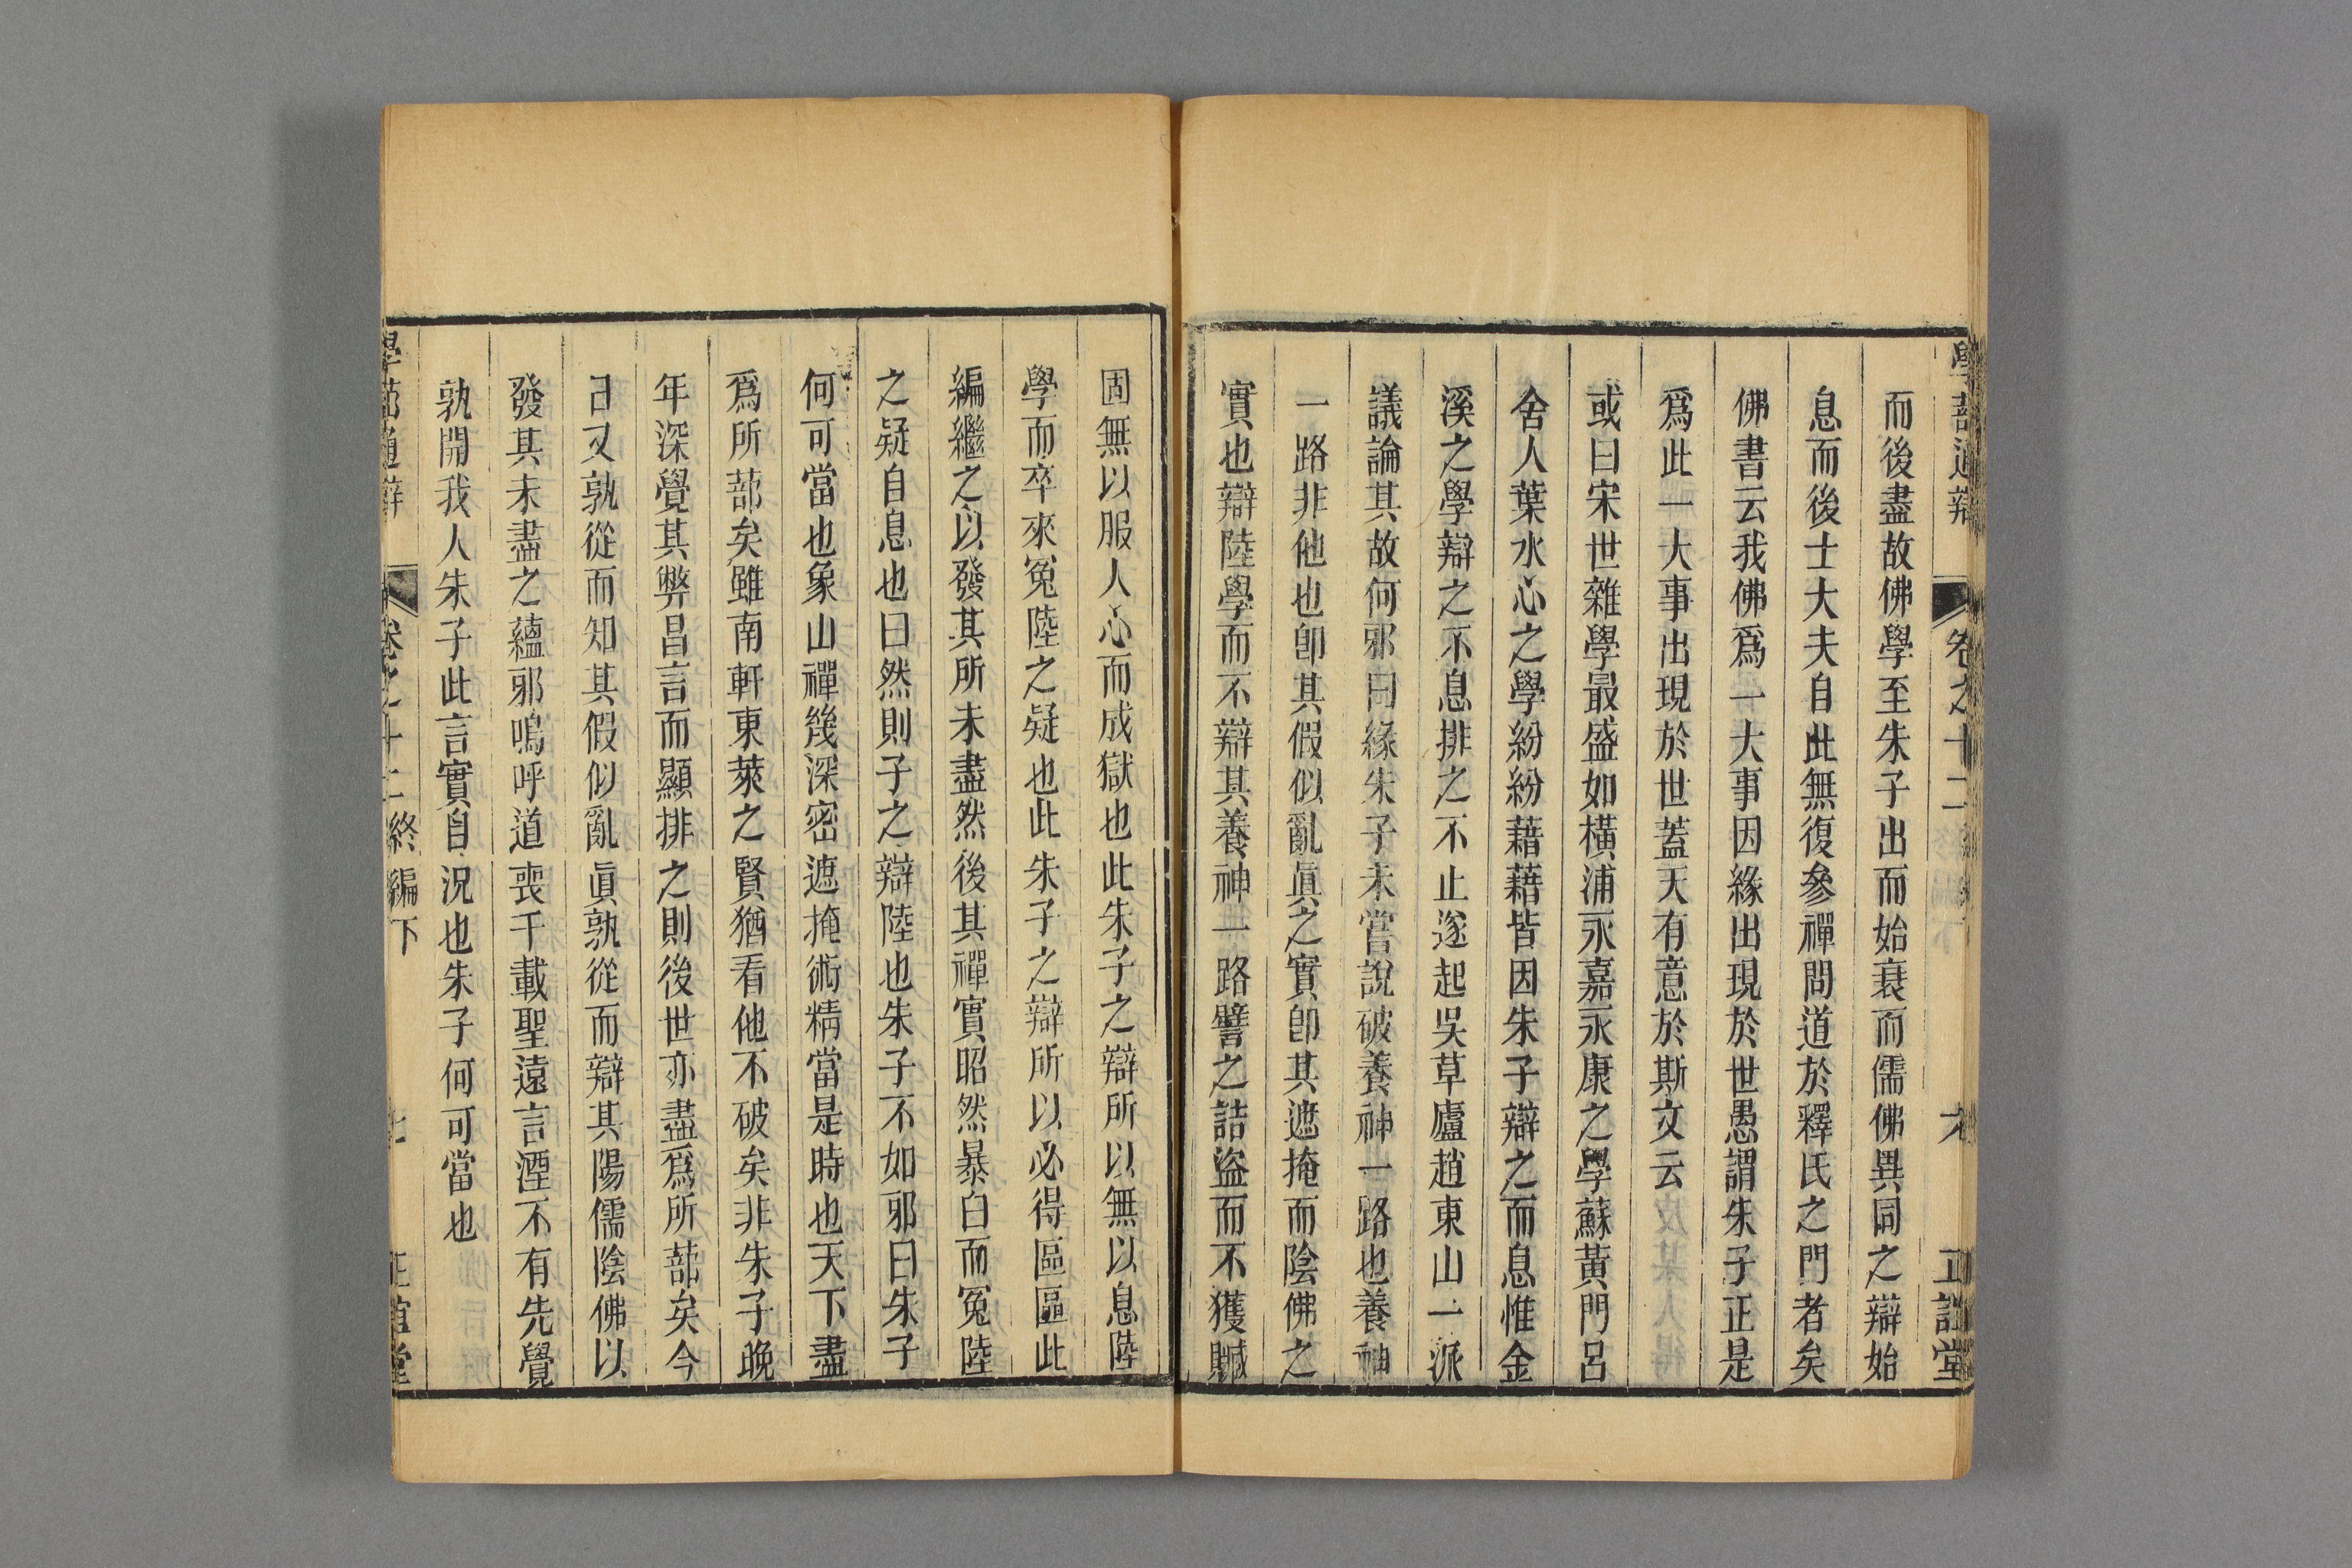 學蔀通辯 卷之十二 六 正誼堂
而後盡故佛學至朱子出而始衰而儒佛異同之辯始
息而後士大夫自此無復參禪問道於釋氏之門者矣
佛書云我佛爲一大事因緣出現於世愚謂朱子正是
爲此一大事出現於世蓋天有意於斯文云
或曰宋世雜學最盛如橫浦永嘉永康之學蘇黃門呂
舍人葉水心之學紛紛藉藉皆因朱子辯之而息惟金
溪之學辯之不息排之不止遂起吳草廬趙東山一派
議論其故何邪曰緣朱子未嘗說破養神一路也養神
一路非他也卽其假似亂眞之實卽其遮掩而陰佛之
實也辯陸學而不辯其養神一路譬之詰盜而不獲贓
固無以服人心而成獄也此朱子之辯所以無以息陸
學而卒來寃陸之疑也此朱子之辯所以必得區區此
編繼之以發其所未盡然後其禪實昭然暴白而寃陸
之疑自息也曰然則子之辯陸也朱子不如邪曰朱子
何可當也象山禪幾深密遮掩術精當是時也天下盡
爲所蔀矣雖南軒東萊之賢猶看他不破矣非朱子晚
年深覺其弊昌言而顯排之則後世亦盡爲所蔀矣今
日又孰從而知其假似亂眞孰從而辯其陽儒陰佛以
發其未盡之蘊邪嗚呼道喪千載聖遠言湮不有先覺
孰開我人朱子此言實自況也朱子何可當也
學蔀通辯 卷之十二終編下 七 正誼堂